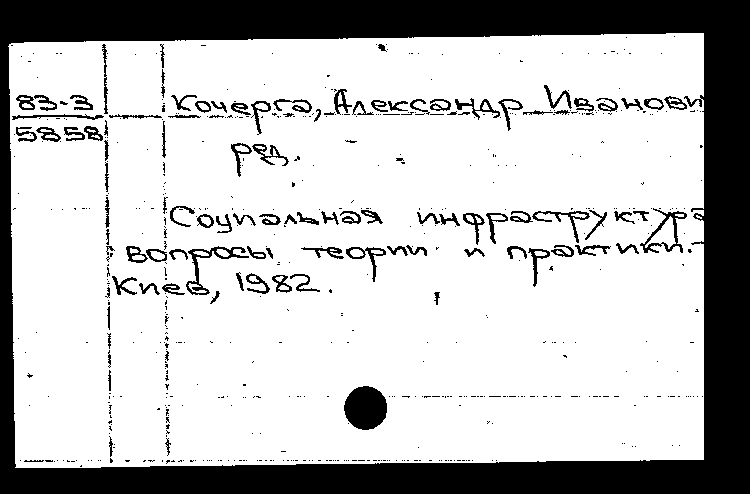 83-3 Кочерга, Александр Иванови
5858
ред.
Социальная инфраструктура
вопросы теории и практики.-
Киев, 1982.